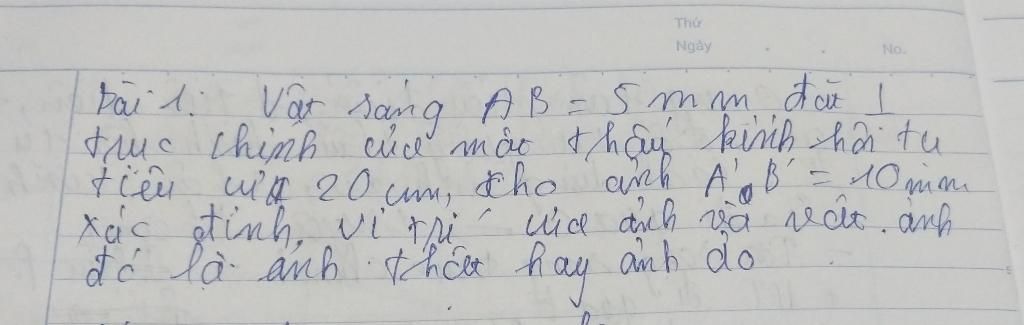 Thứ
Ngày . . No.
Bài 1: Vật sáng AB = 5 mm đặt ⊥
trục chính của một thấu kính hội tụ
tiêu cự 20 cm, cho ảnh A'B' = 10 mm
xác định vị trí của ảnh và vật. ảnh
đó là ảnh thật hay ảnh ảo